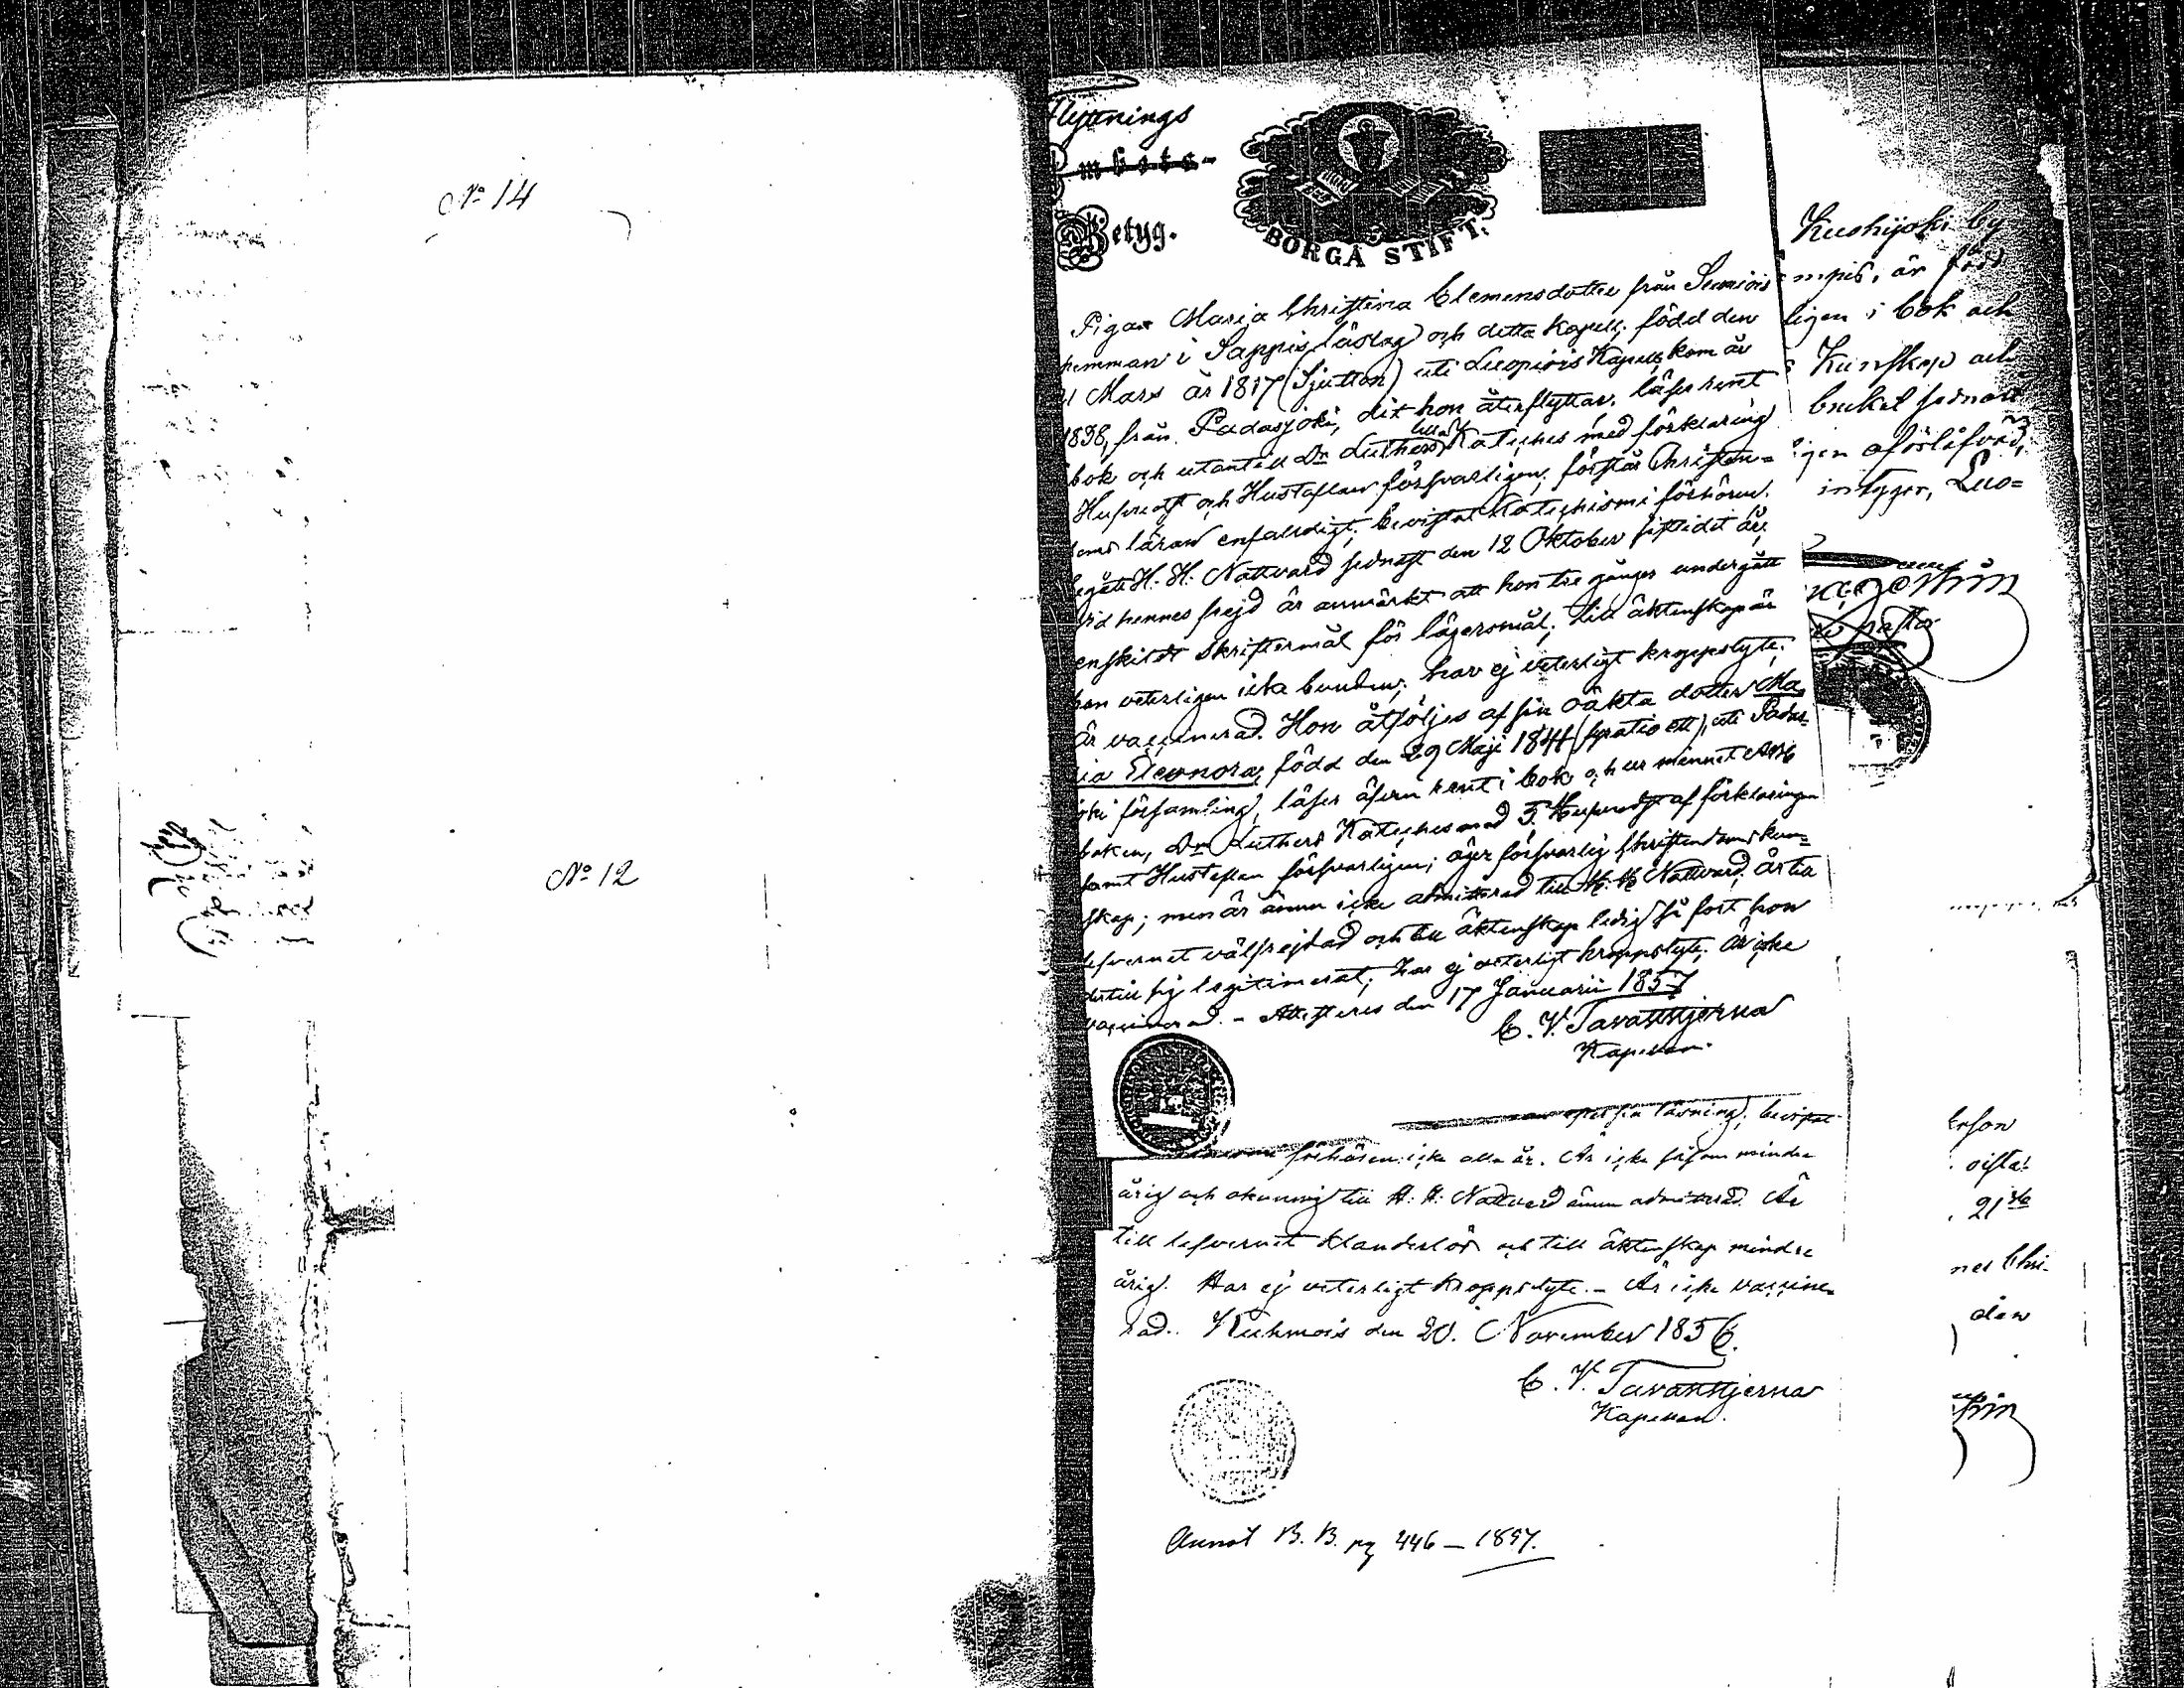 No 14
No 12
Flyttnings
Ambets-
Betyg.
BORGÅ STIFT.
Pigan Maria Christina Clemensdotter från
hemman i Sappis läslag och detta Kapell, född den
21 Mars år 1817 (Sjutton) uti Luopiois Kapell, kom år
1838, från Padasjoki, dit hon återflyttar, läser rent
i bok och utantill Dr Luthers Kateches med förklaring
Huspredst och Hustaflan försvarligen; förstår Christen=
doms läran enfaldigt; bevistat Katechismi förhören.
begått H. H. Nattvard sednast den 12 Oktober sistlidit år;
Vid hennes frejd är anmärkt att hon tre gånger undergått
enskildt Skriftermål för lägersmål; till äktenskap är
hon veterligen icke bunden; har ej veterligt kroppslyte;
är vaccinerad. Hon åtföljes af sin oäkta dotter Ma
ria Eleonora, född den 29 Maji 1841 (fyratio ett), uti Padas-
joki församling, läser äfven rent i bok och ur minnet ABC
boken, Dr Luthers Kateches med 5. Huspredst af förklaringen
samt Hustaflan försvarligen; äger försvarlig Christendoms kun=
skap; men är ännu icke admitterad till H. H. Nattvard, är till
lefvernet välfrejdad och till äktenskap ledig så fort hon
dertill sig legitimerat; har ej veterligt kroppslyte. är icke
vaccinerad. - Attesteres den 17 Januarii 1857
C. V. Tavaststjerna
Kapellan.
läsning; bevistat
förhören icke alla år. Är icke såsom minder
årig och okunnig till H. H. Nattvard ännu admitterad. Är
till lefvernet klanderlös och till äktenskap minder
årig. Har ej veterligt kroppslyte. - Är icke vaccine-
rad. Kuhmois den 20. November 1856.
C. V. Tavaststjerna
Kapellan.
Annot B. B. pg 446 - 1857.
Kuohijoki by
mpis, är född
ligen i bok och
Kunskap och
brukat sednast
igen
intyger, Luo=
erson
21
nes Chri-
den